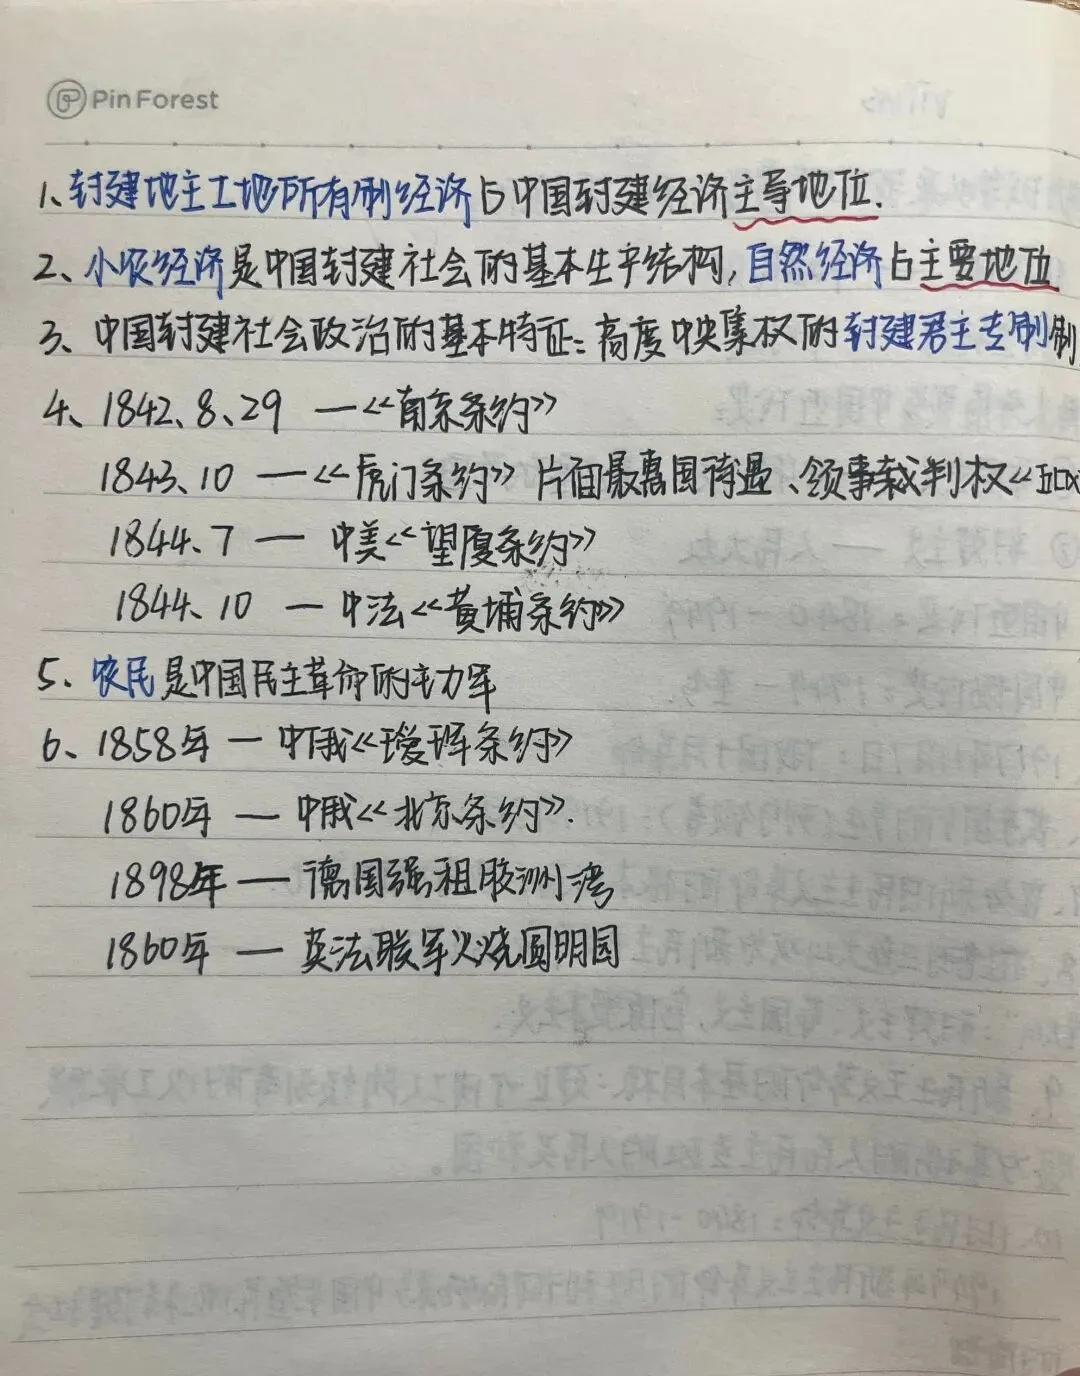 Pin Forest
1、封建地主土地所有制经济占中国封建经济主导地位.
2、小农经济是中国封建社会的基本生产结构,自然经济占主要地位
3、中国封建社会政治的基本特征:高度中央集权的封建君主专制制
4、1842、8、29 —《南京条约》
1843、10 —《虎门条约》片面最惠国待遇、领事裁判权《五口
1844、7 — 中美《望厦条约》
1844、10 — 中法《黄埔条约》
5、农民是中国民主革命的主力军
6、1858年 — 中俄《瑷珲条约》
1860年 — 中俄《北京条约》.
1898年 — 德国强租胶洲湾
1860年 — 英法联军火烧圆明园